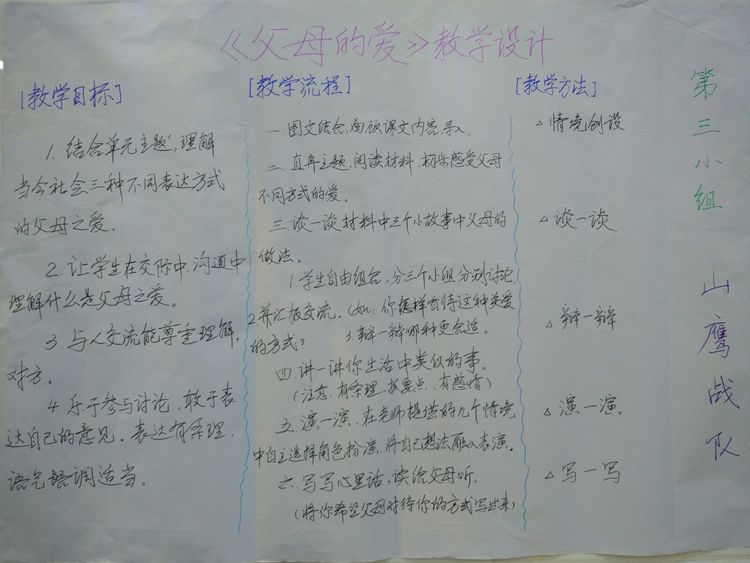 《父母的爱》教学设计
[教学目标]
1. 结合单元主题,理解
当今社会三种不同表达方式
的父母之爱。
2. 让学生在交际中,沟通中
理解什么是父母之爱。
3. 与人交流能尊重理解
对方。
4. 乐于参与讨论,敢于表
达自己的意见。表达有条理,
语气语调适当。
[教学流程]
一.图文结合,回顾课文内容导入。
二.直奔主题,阅读材料,初步感受父母
不同方式的爱。
三.谈一谈材料中三个小故事中父母的
做法。
1.学生自由组合,分三个小组分别讨论,
2.并汇报交流。(如:你怎样看待这种关爱
的方式?
3.辩一辩哪种更合适。
四.讲一讲你生活中类似的事。
(注意:有条理,抓重点,有感情)
五.演一演,在老师提供的几个情境
中自主选择角色扮演,将自己想法融入表演。
六.写写心里话,读给父母听。
(将你希望父母对待你的方式写出来)
[教学方法]
△情境创设
△谈一谈
△辩一辩
△演一演,
△写一写
第三小组
山鹰战队